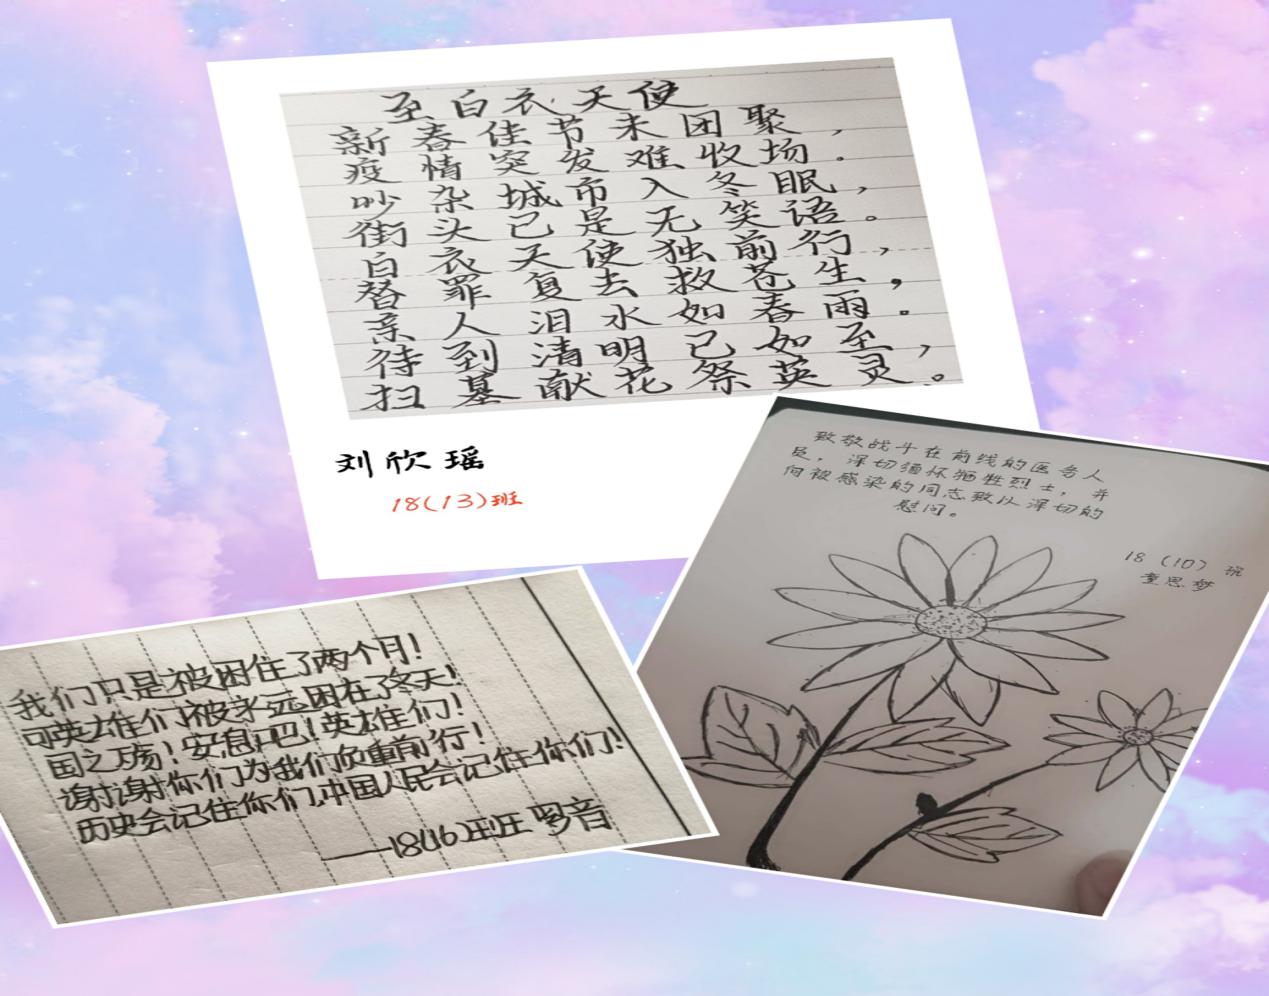 至白衣天使
新春佳节未团聚，
疫情突发难收场．
吵杂城市入冬眠，
街头已是无笑语。
白衣天使独前行，
督罪复去救苍生，
亲人泪水如春雨。
待到清明已如至，
扫墓献花祭英灵。
刘欣瑶
18(13)班
致敬战斗在前线的医务人
员，深切缅怀牺牲烈士，并
向被感染的同志致以深切的
慰问。
18（10）班
童思梦
我们只是被困住了两个月！
可英雄们被永远困在了冬天！
国之殇！安息吧！英雄们！
谢谢你们为我们负重前行！
历史会记住你们，中国人民会记住你们！
——18(16)班 音